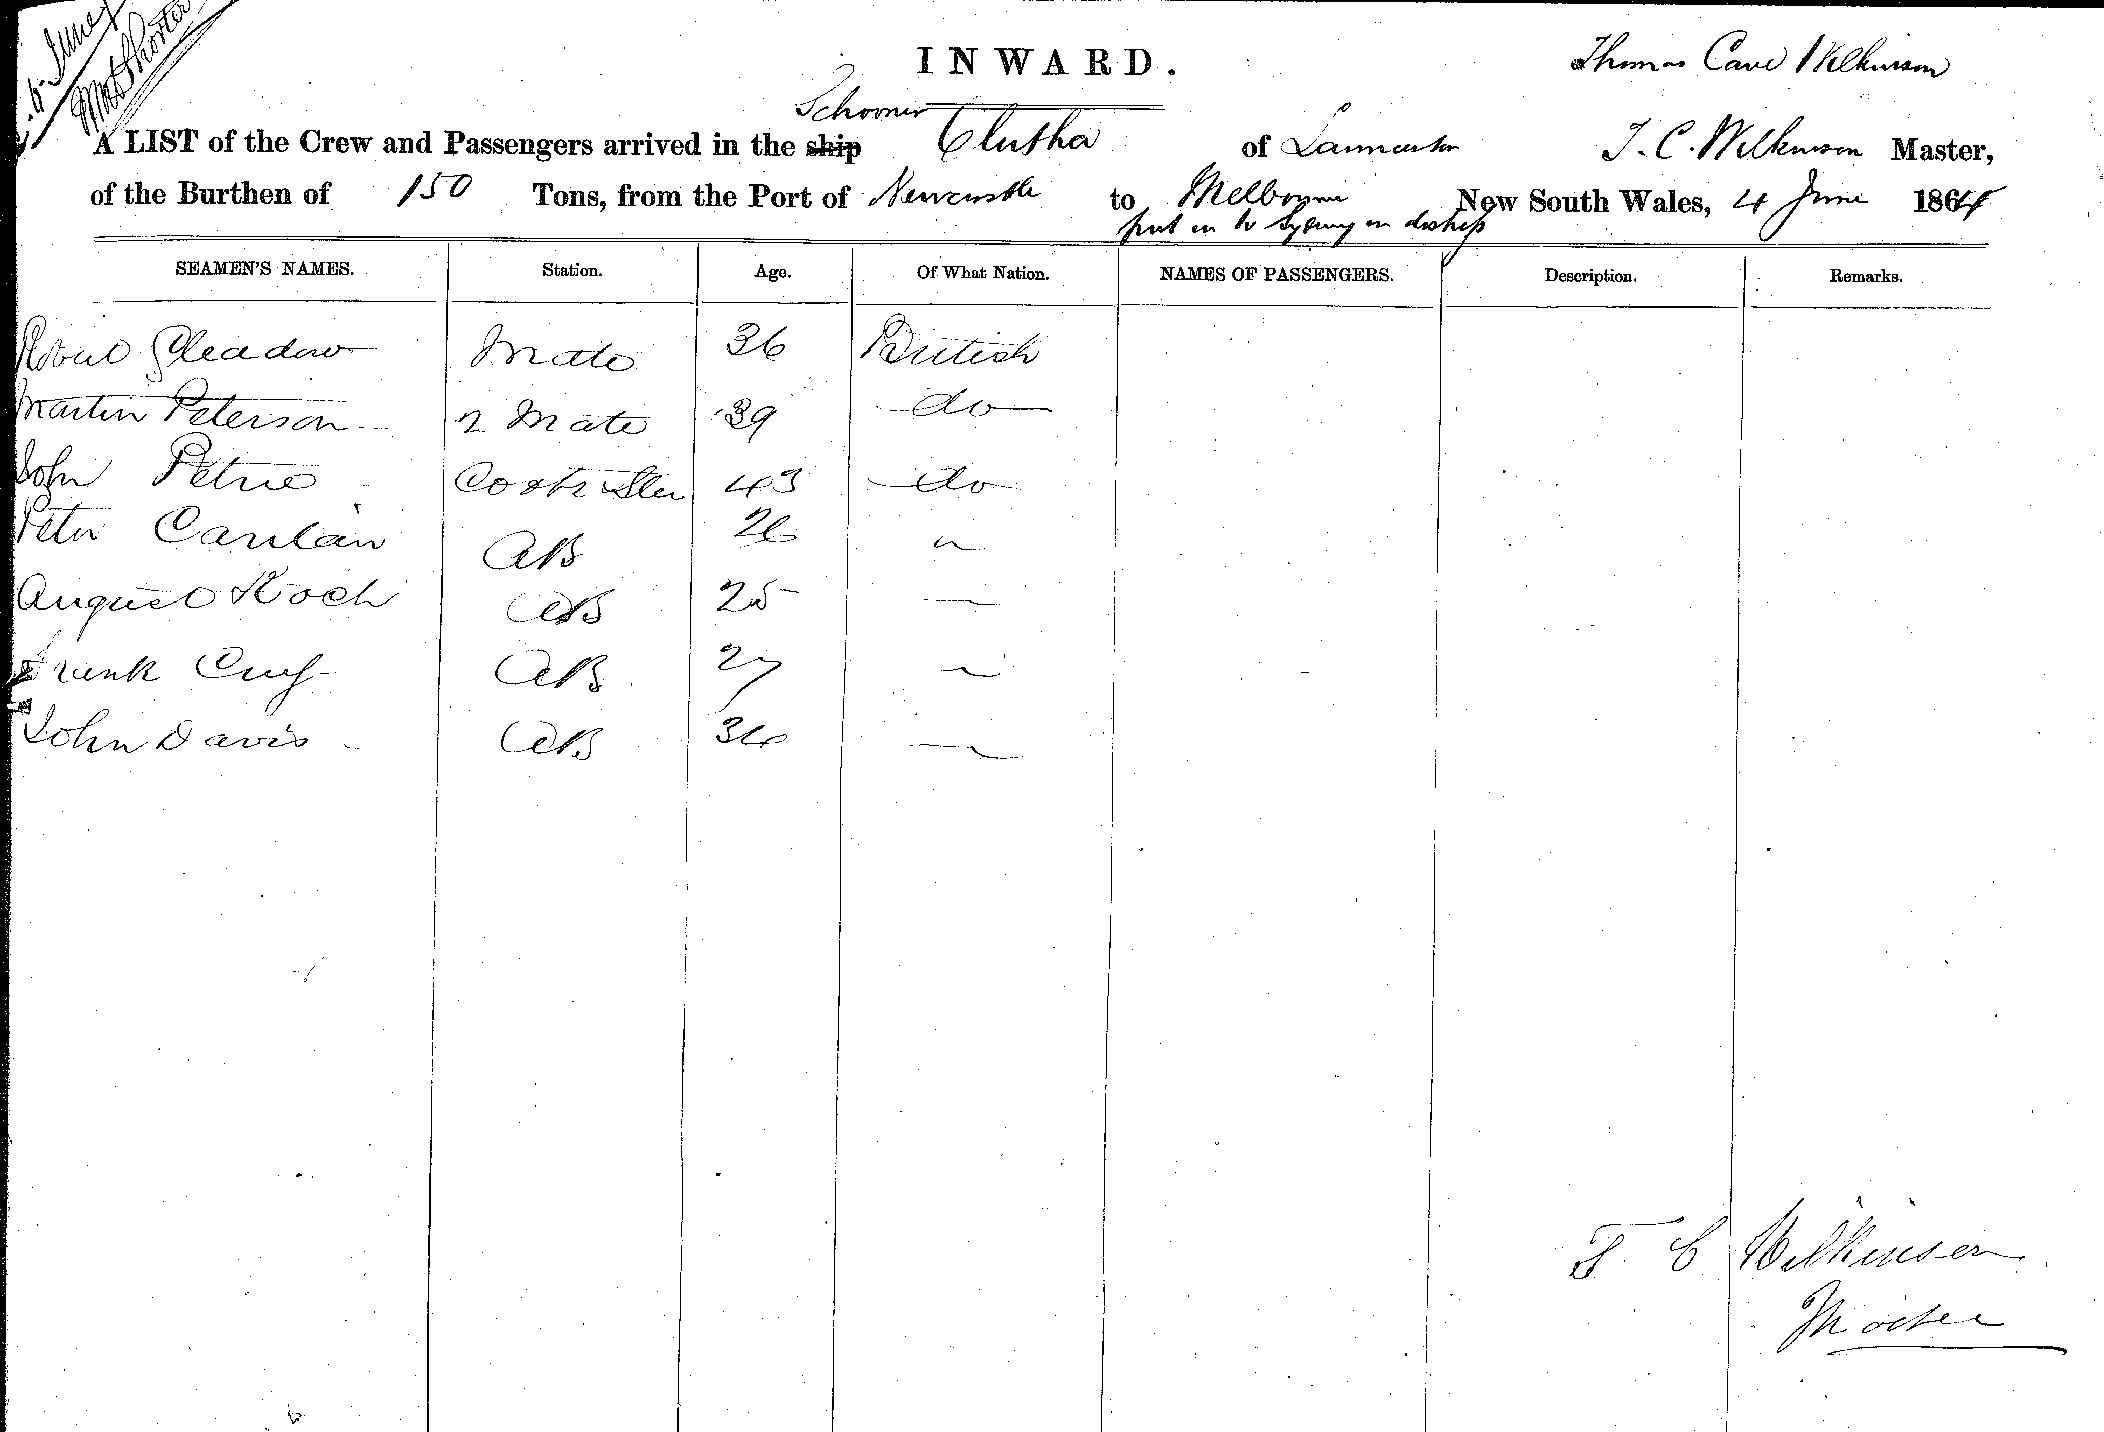 6 June
INWARD.
Thomas Cave Wilkinson
Schooner
A LIST of the Crew and Passengers arrived in the ship Clutha of Launceston T. C. Wilkinson Master,
of the Burthen of 150 Tons, from the Port of Newcastle to Melbourne New South Wales, 4 June 1864
put in to Sydney in distress
SEAMEN'S NAMES. Station. Age. Of What Nation. NAMES OF PASSENGERS. Description. Remarks.
Robert Gleadow Mate 36 British
Martin Peterson 2 Mate 39 do
John Petrie Cook & Stew 43 do
Peter AB 26 "
August Koch AB 25 —
Frank AB 27 —
John Davis AB 34 —
T C Wilkinson
Master